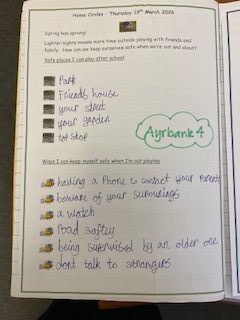 Home Circles – Thursday 19th March 2026
Spring has sprung!
Lighter nights means more time outside playing with friends and
family. How can we keep ourselves safe when we're out and about?
Safe places I can play after school
Park
Friends house
your street
your garden
top shop
Ayrbank 4
Ways I can keep myself safe when I'm out playing
having a Phone to contact your Parents
beware of your surouings
a watch
road saftey
being supervised by an older one
dont talk to strangers